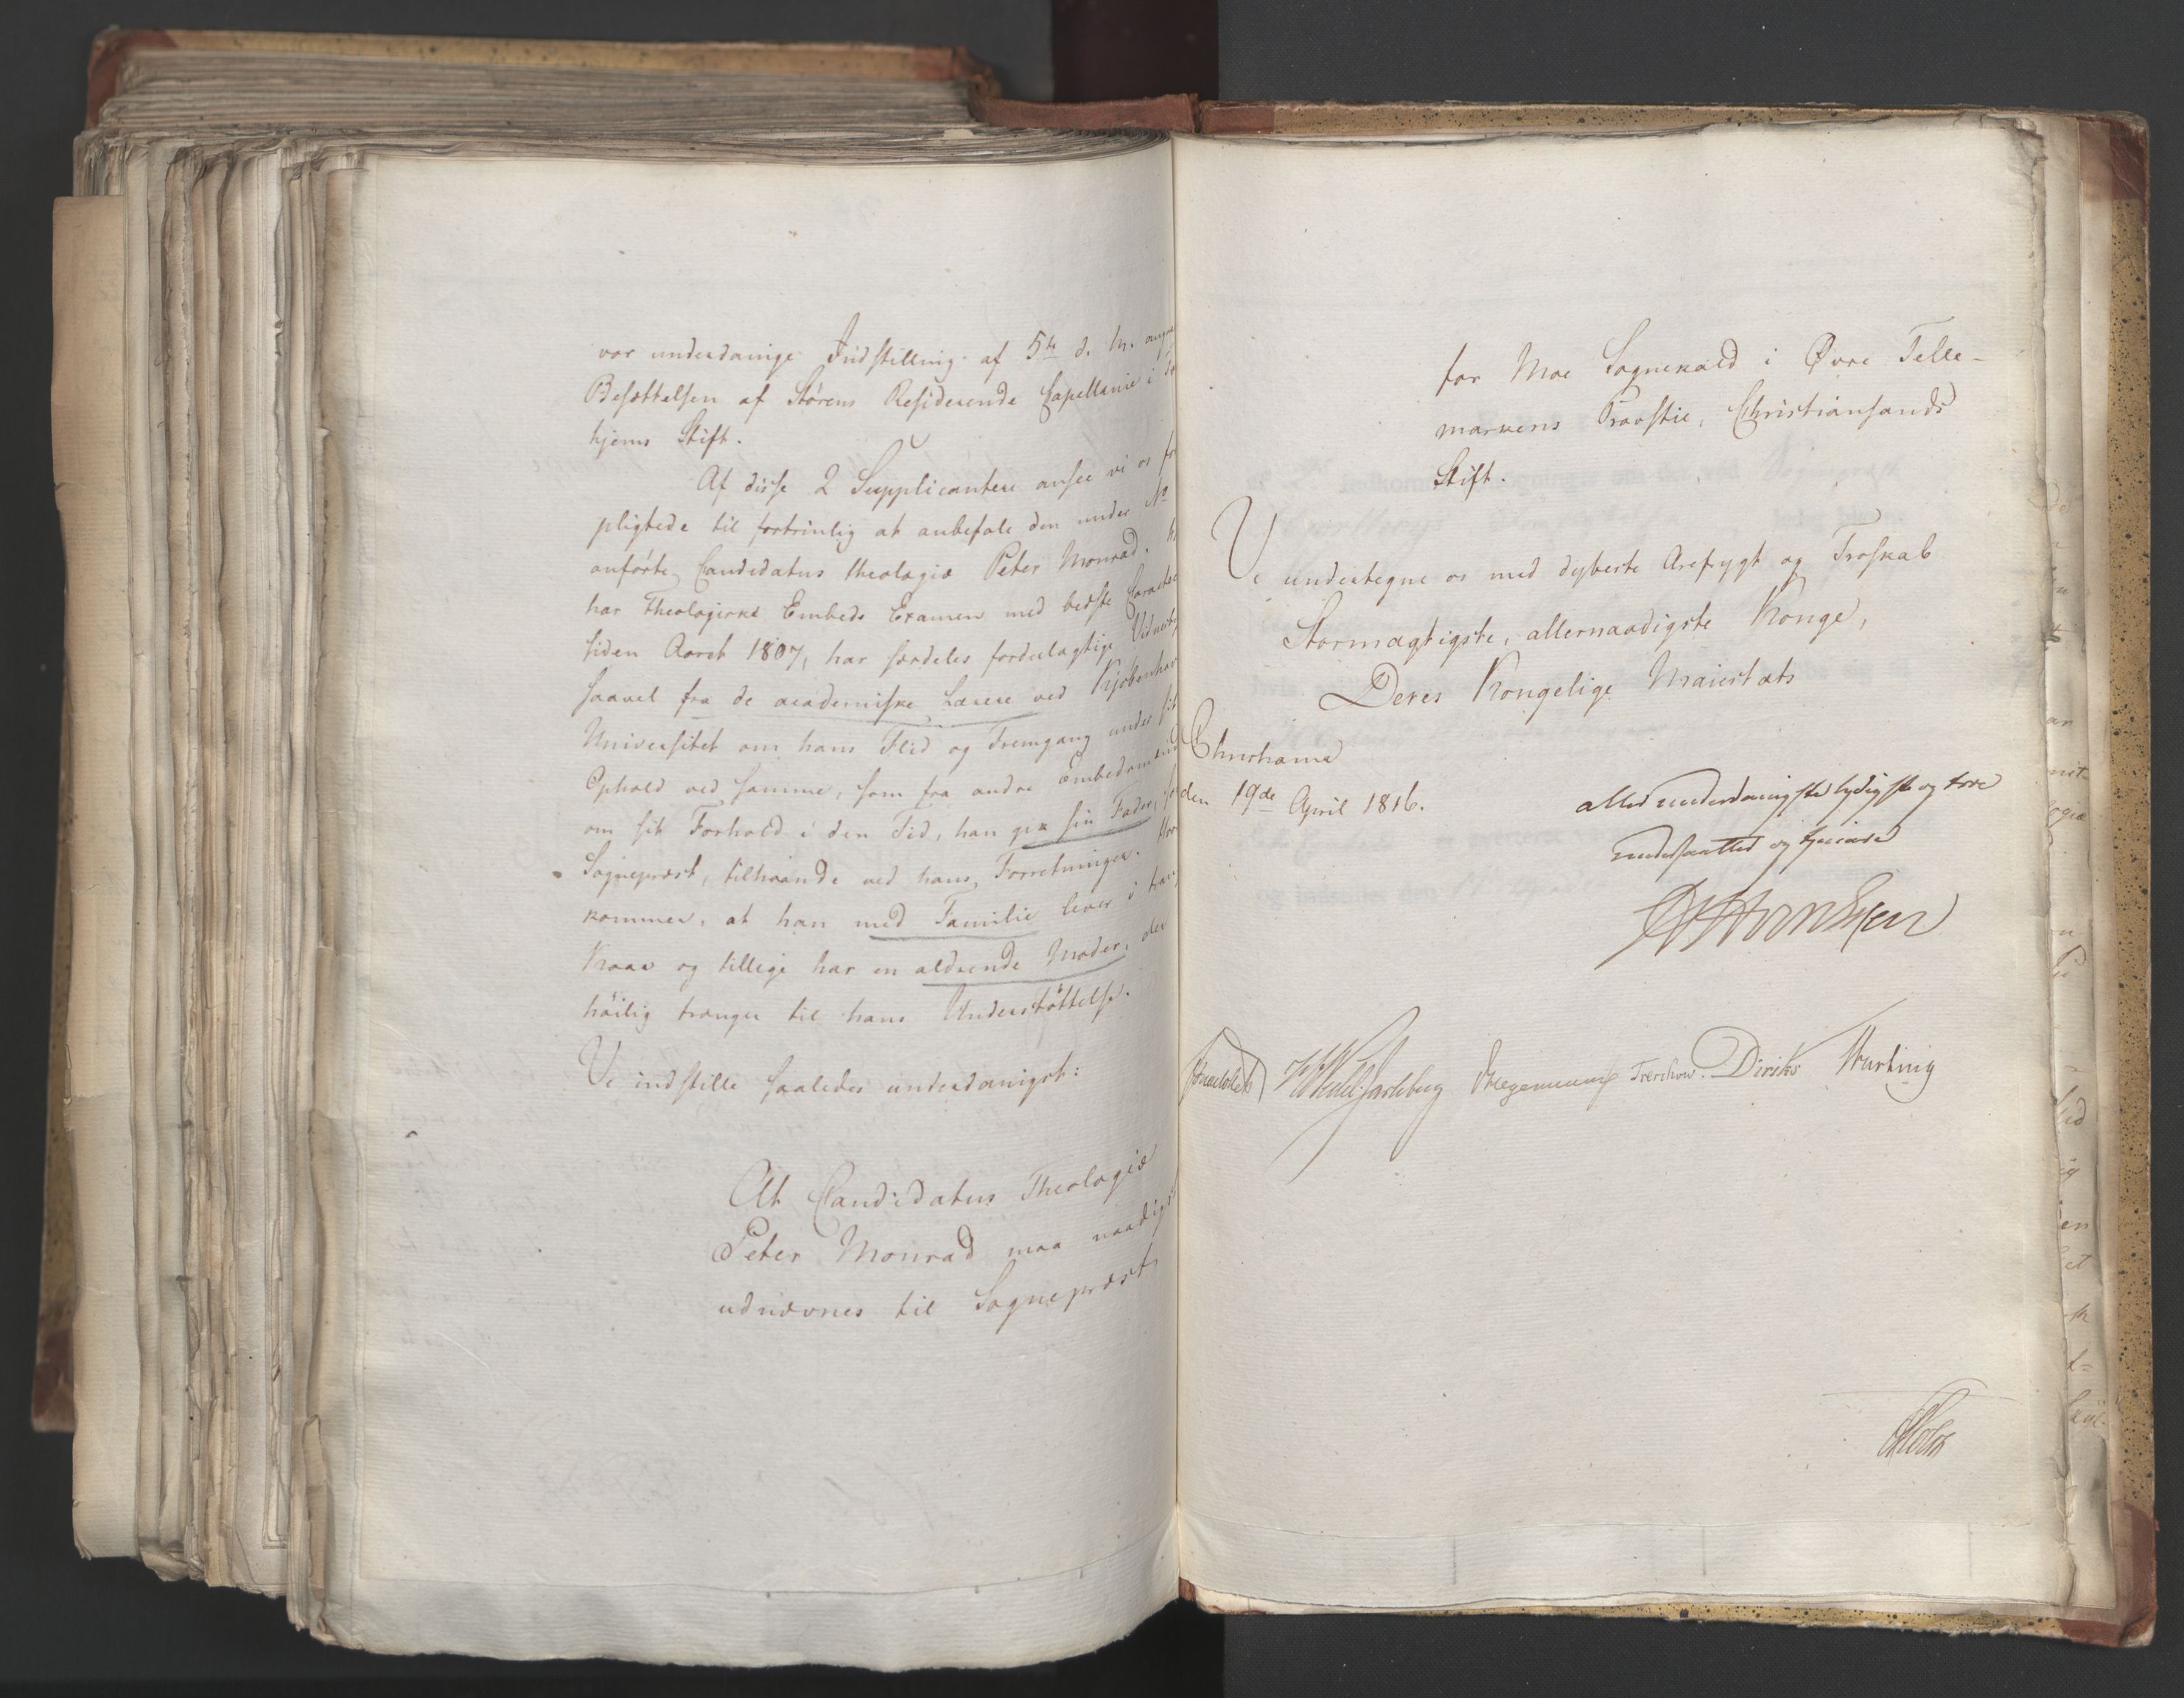 vor underdanige Indstilling af 5te d. M.
Besættelsen af Størens Residerende Capellanie i
hjems Stift.
Af disse 2 Supplicantere ansee vi os for
pligtede til fortrinlig at anbefale den under No
anførte Candidatus theologiæ Peter Monrad.
har Theologiske Embeds Examen med bedste Caracteer
siden Aaret 1807, har særdeles fordeelagtige
saavel fra de academiske Lærere ved Kjøbenhav
Universitet om hans Flid og Fremgang under sit
Ophold ved samme, som fra andre Embedsmænd
om sit Forhold i den Tid, han gik sin Fader,
Sognepræst, tilhaande ved hans Forretninger.
kommer, at han med Familie lever i
Kaar og tillige har en aldrende Moder, der
höilig trænger til hans Understöttelse.
Vi indstille saaledes underdanigst:
At Candidatus Theologiæ
Peter Monrad maa naadigst
udnævnes til Sognepræst
for Moe Sognekald i Øvre Telle-
markens Provstie, Christiansands
Stift.
Vi undertegne os med dybeste Ærefrygt og Troskab
Stormægtigste, allernaadigste Konge,
Deres Kongelige Maiestæts
Christiania
den 19de April 1816.
allerunderdanigste lydigste og troe
undersaatter og tjenere
Sommerhielm HWedel Jarlsberg Hegermann Treschow. Diriks Harting
Holst